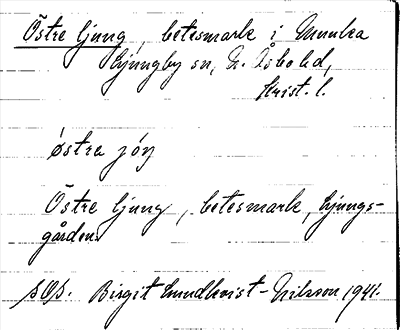 Östre ljung, betesmark i Munka
Ljungby sn, N. Åsbo hd,
Krist. l.
östra jöŋ
Östre ljung, betesmark, Ljungs-
gården.
Birgit Lundkvist-Nilsson 1941.